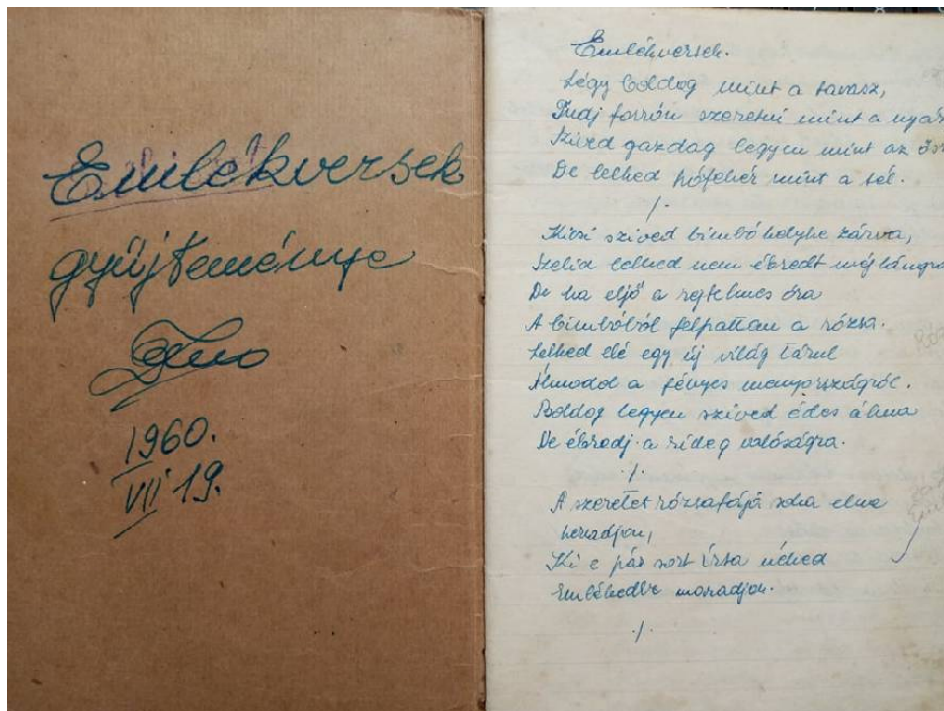 Emlékversek
gyűjteménye
1960.
VII 19.
Emlékversek.
Légy boldog mint a tavasz,
Tudj forrón szeretni mint a nyár
Szíved gazdag legyen mint az
De lelked hófehér mint a tél.
./.
Kicsi szived bimbó helyhe zárva,
Szelid lelked nem ébredt még lángra
De ha eljő a rejtelmes óra
A bimbóból felpattan a rózsa.
Lelked elé egy új világ tárul
Álmodd a fényes mennyországról.
Boldog legyen szived édes álma
De ébredj a rideg valóságra.
./.
A szeretet rózsafája soha elne
heradjon,
Ki e pár sort írta néked
Emlékedbe maradjon.
./.